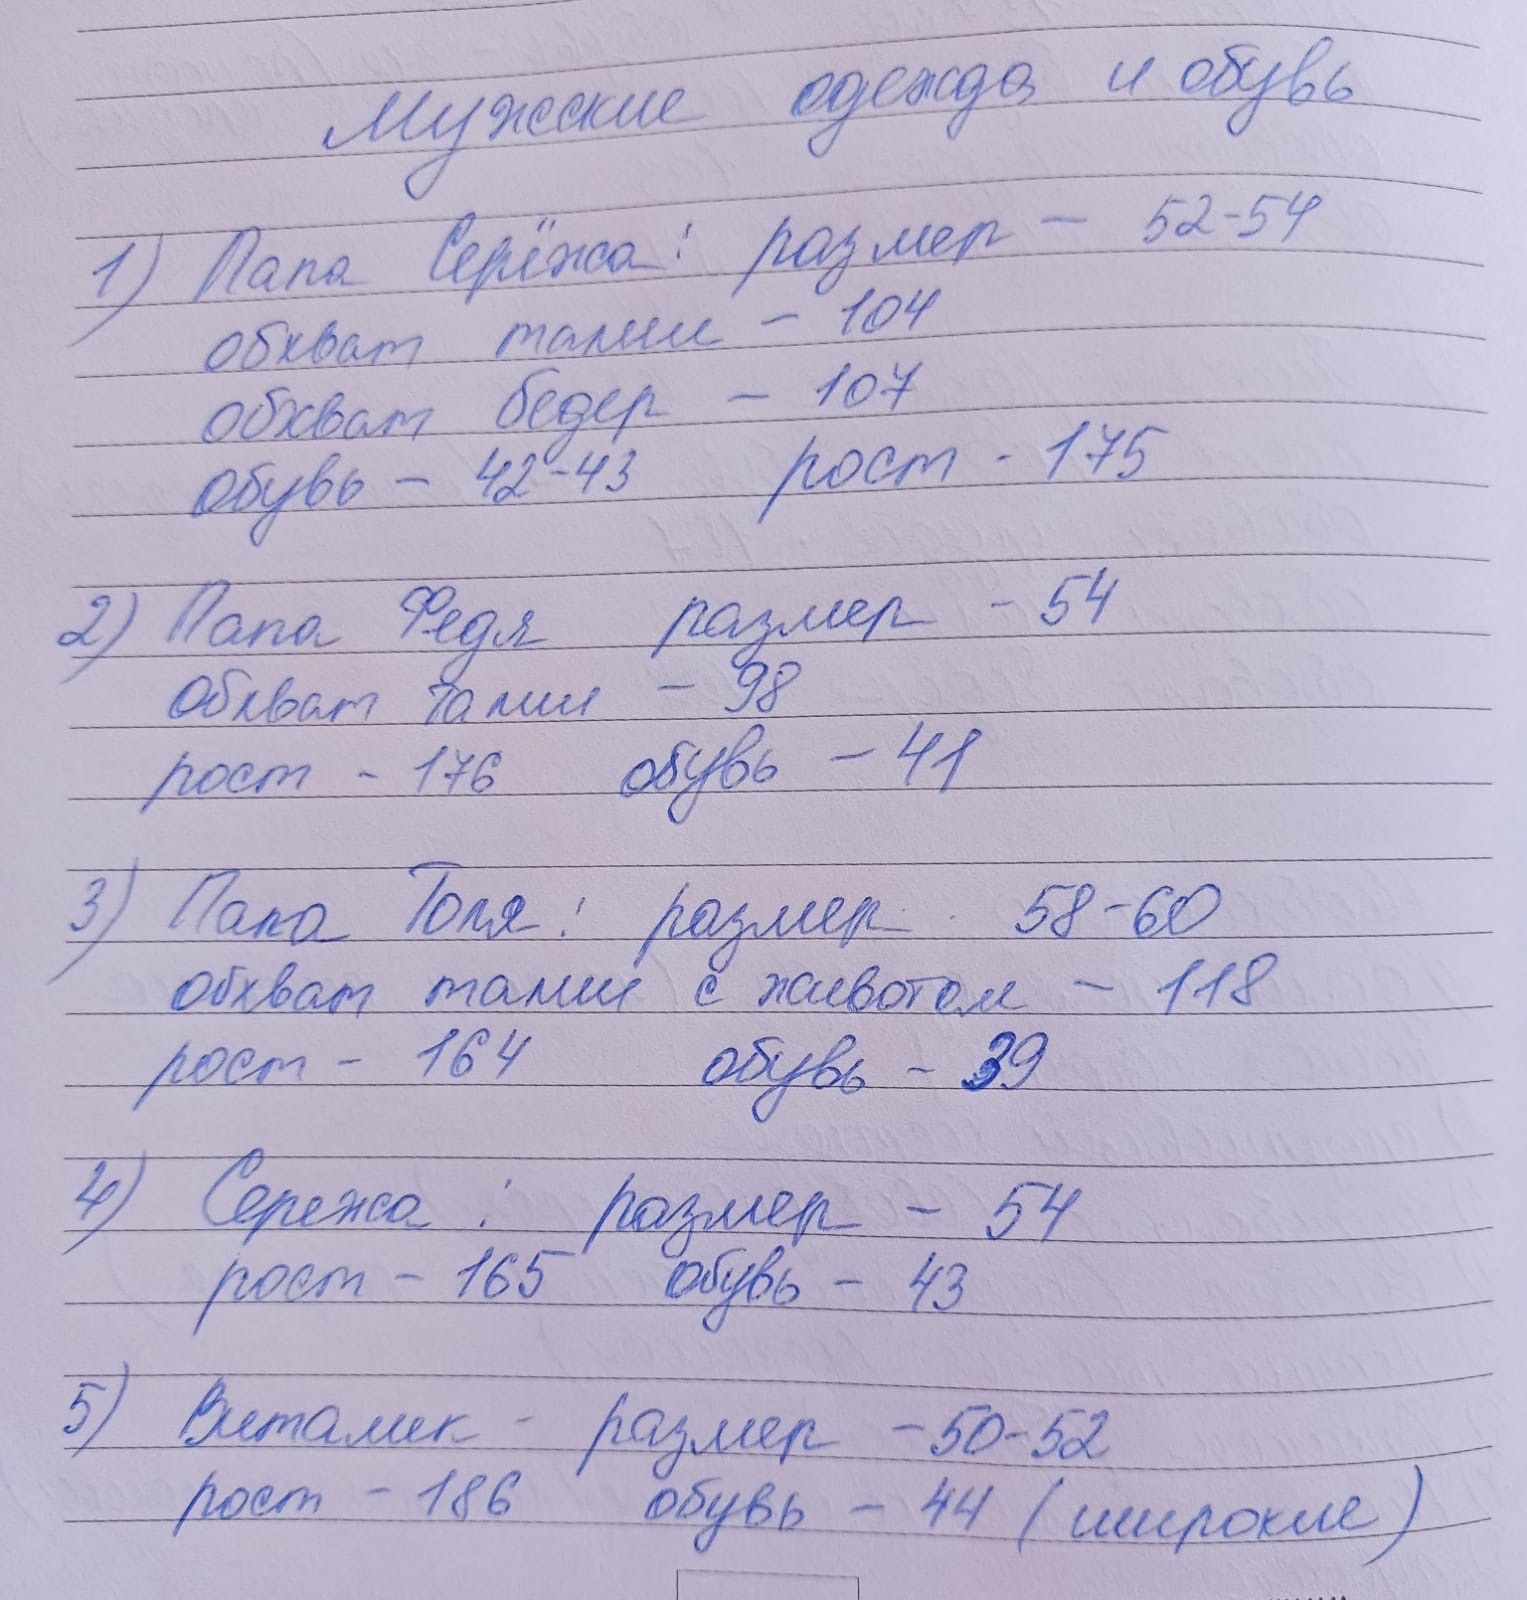 Мужские одежда и обувь
1) Папа Серёжа: размер - 52-54
обхват талии - 104
обхват бедер - 107
обувь - 42-43 рост - 175
2) Папа Федя размер - 54
обхват талии - 98
рост - 176 обувь - 41
3) Папа Толя: размер 58-60
обхват талии с животом - 118
рост - 164 обувь - 39
4) Сережа: размер - 54
рост - 165 обувь - 43
5) Виталик - размер - 50-52
рост - 186 обувь - 44 (широкие)